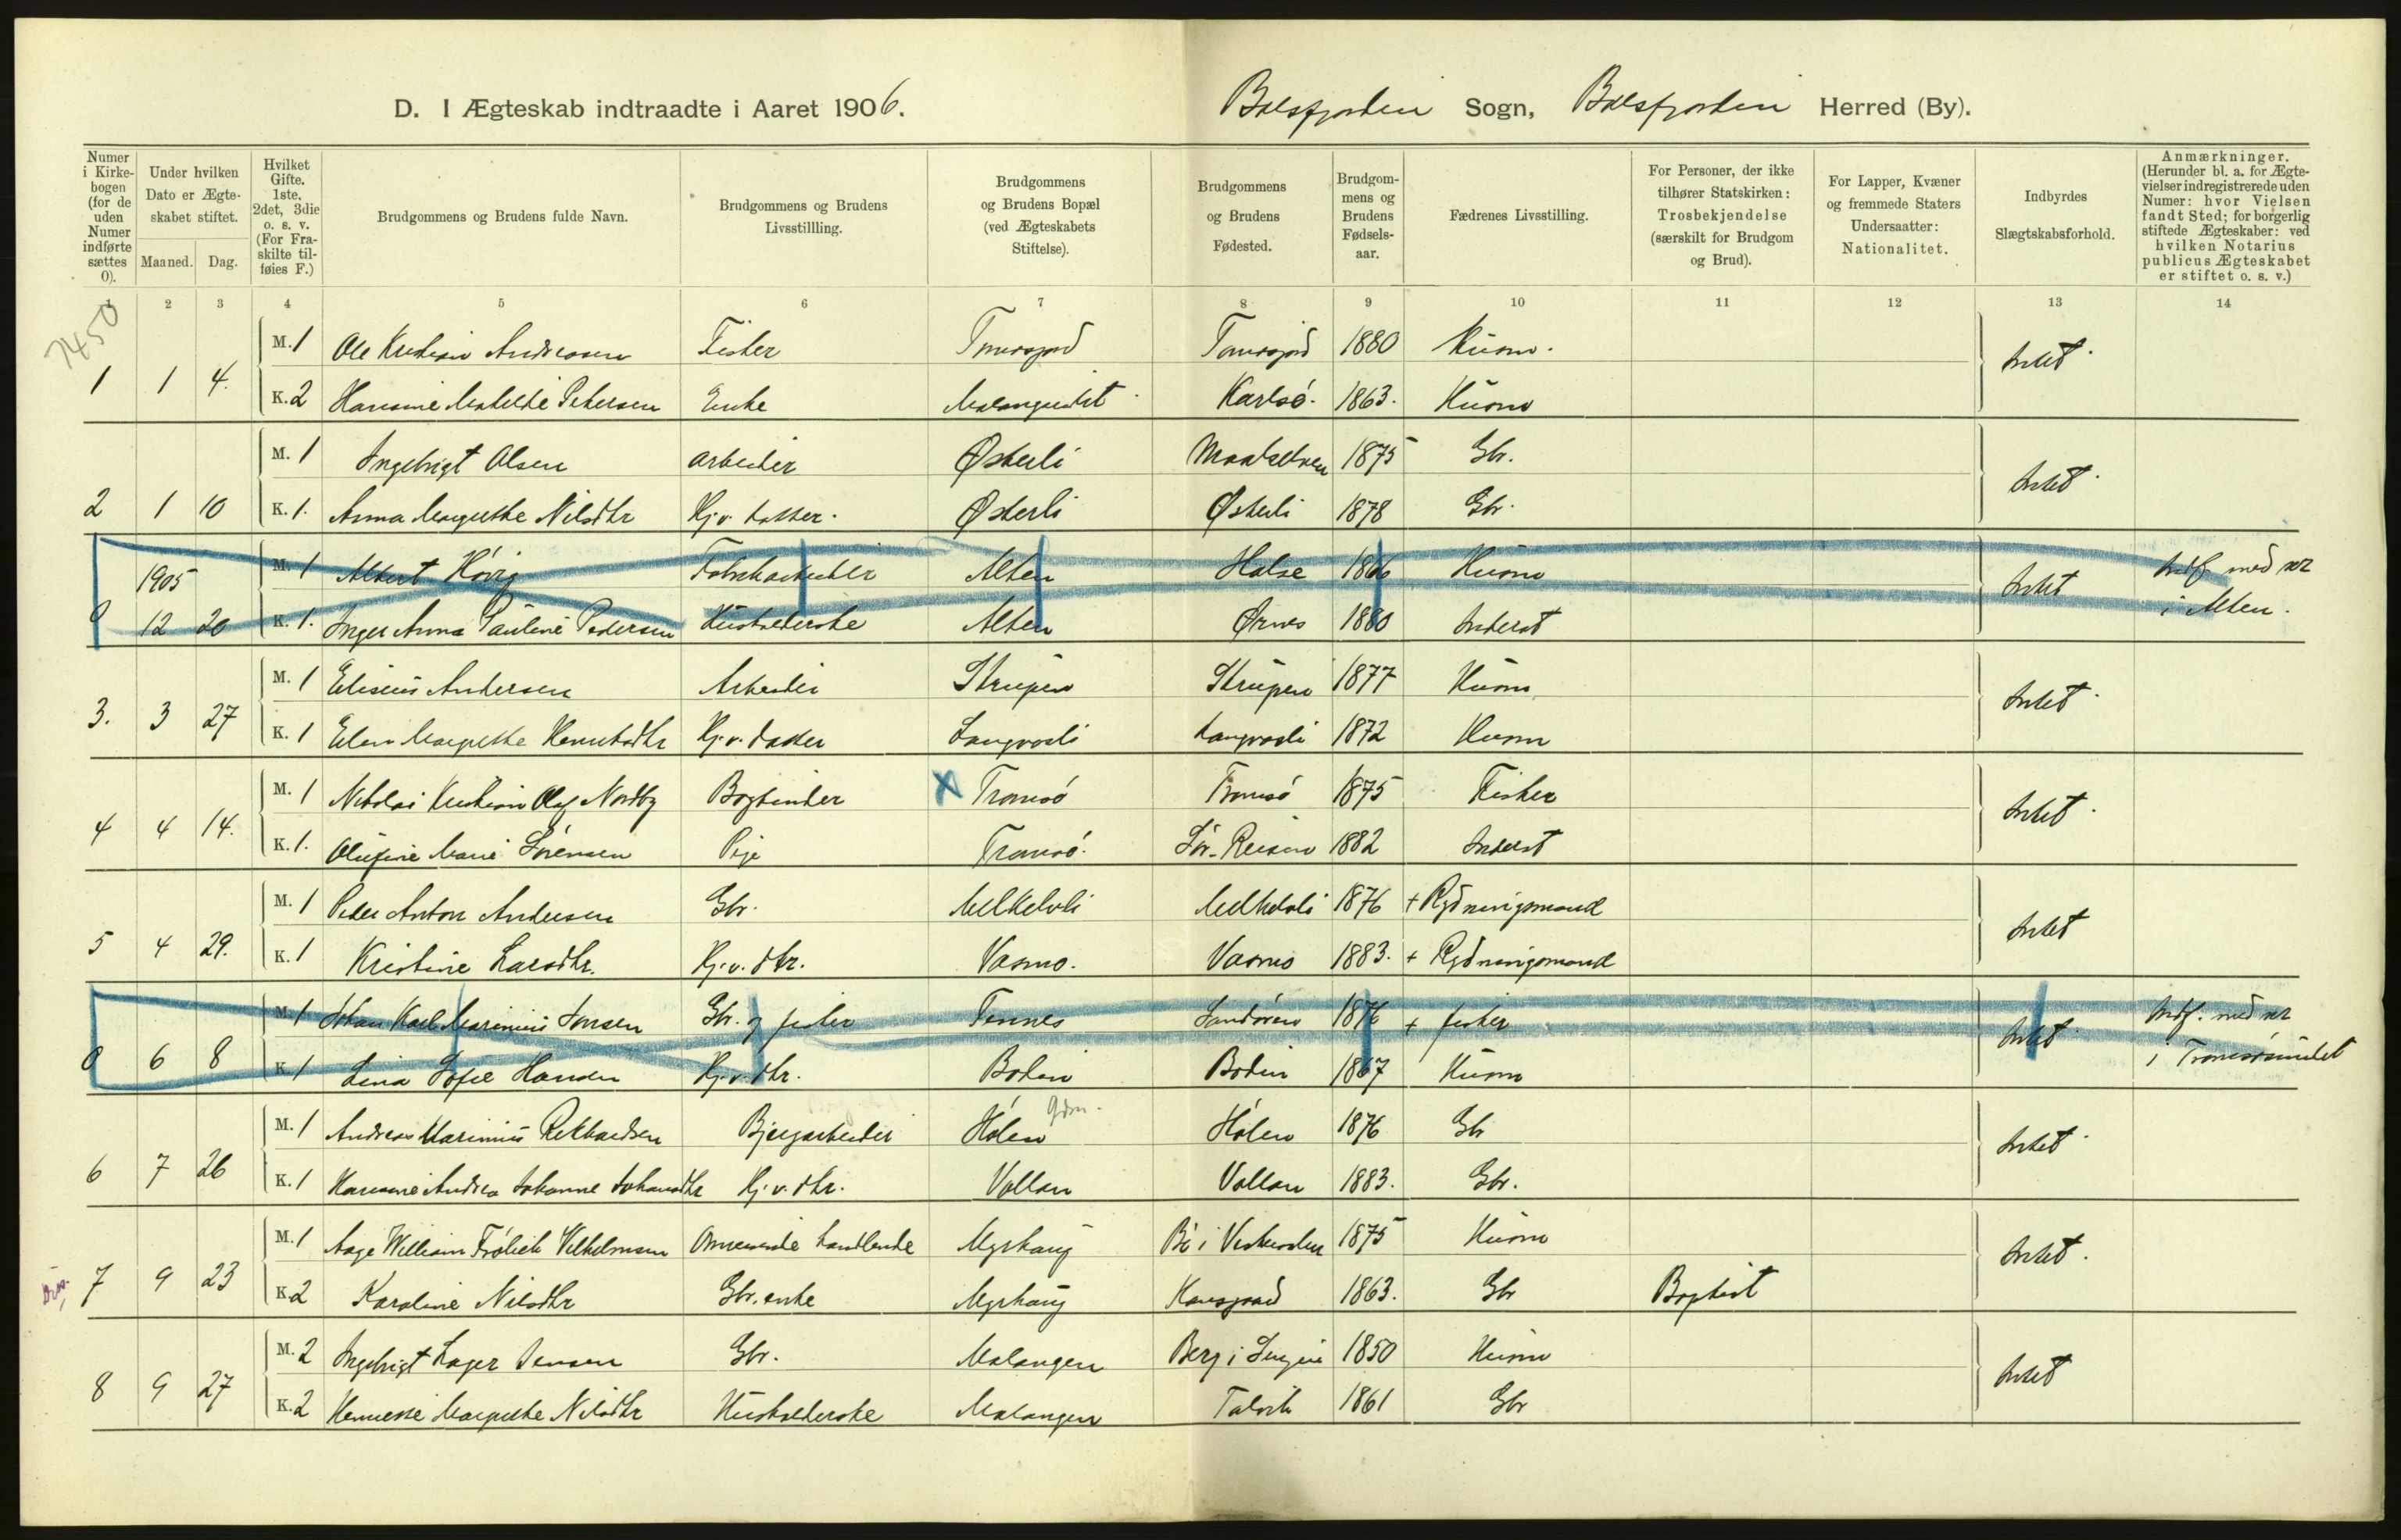 D. I Ægteskab indtraadte i Aaret 1906. Balsfjorden Sogn, Balsfjorden Herred (By).
Numer i Kirkebogen (for de uden Numer indførte sættes 0).
Under hvilken Dato er Ægteskabet stiftet.
Maaned. Dag.
Hvilket Gifte. 1ste, 2det, 3die o. s. v. (For Fraskilte tilføies F.)
Brudgommens og Brudens fulde Navn.
Brudgommens og Brudens Livsstillling.
Brudgommens og Brudens Bopæl (ved Ægteskabets Stiftelse).
Brudgommens og Brudens Fødested.
Brudgommens og Brudens Fødselsaar.
Fædrenes Livsstilling.
For Personer, der ikke tilhører Statskirken: Trosbekjendelse (særskilt for Brudgom og Brud).
For Lapper, Kvæner og fremmede Staters Undersaatter: Nationalitet.
Indbyrdes Slægtskabsforhold.
Anmærkninger. (Herunder bl. a. for Ægtevielser indregistrerede uden Numer: hvor Vielsen fandt Sted; for borgerlig stiftede Ægteskaber: ved hvilken Notarius publicus Ægteskabet er stiftet o. s. v.)
1 2 3 4 5 6 7 8 9 10 11 12 13 14
7450
M. 1 Ole Kristian Andreasen Fisker 1880 Husm. Intet
1 1 4. K. 2 Hansine Matilde Petersen Enke Malangseidet Karlsø. 1863. Husm
M. 1 Ingebrigt Olsen arbeider Østerli Maalselven 1875 Gbr. Intet
2 1 10 K. 1. Anna Margrethe Nilsdtr Kj. v. datter. Østerli Østerli 1878 Gbr.
1905 M. 1 Albert Høvig Fabrikarbeider Alten Halse 1866 Husm Intet Indf. med nr
0 12 20 K. 1. Inger Anna Pauline Pedersen Husholderske Alten Ørnes 1880 Inderst i Alten.
M. 1 Eliseus Andersen Arbeider Strupen Strupen 1877 Husm Intet
3. 3 27 K. 1 Elen Margrethe Kj. v. datter Langvasli Langvasli 1872 Husm
M. 1 Nikolai Kristian Olaf Nordby Bogbinder X Tromsø Tromsø 1875 Fisker Intet
4 4 14. K. 1. Olufine Marie Sørensen Pige Tromsø. Sør-Reisen 1882 Inderst
M. 1 Peder Anton Andersen Gbr. Melkelvli Melkelvli 1876 + Rydningsmand Intet
5 4 29. K. 1 Kristine Larsdtr. Kj. v. dtr. Vasmo. Vasmo 1883. + Rydningsmand
M. 1 Johan Karl Marinius Jonsen Gbr. og fisker Tennes Sandøren 1876 + fisker Intet Indf. med nr
0 6 8 K. 1 Lina Sofie Hansen Kj. v. dtr. Bodin Bodin 1867 Husm i Tromsøsundet
M. 1 Andreas Marinius Rikhardsen Bjergarbeider Hølen Hølen 1876 Gbr Intet
6 7 26 K. 1 Hansine Andrea Johanne Johansdtr Kj. v. dtr. Vollan Vollan 1883. Gbr.
M. 1 Aage William Frølich Vilhelmsen Omreisende handlende Myrhaug Bø i Vesteraalen 1875 Husm Intet.
7 9 23 K. 2 Karoline Nilsdtr Gbr. enke Myrhaug 1863. Gbr Baptist
M. 2 Ingebrigt Lager Jensen Gbr. Malangen Berg i Senjen 1850 Husm Intet
8 9 27 K. 2 Margrethe Nilsdtr Husholderske Malangen Talvik 1861 Gbr